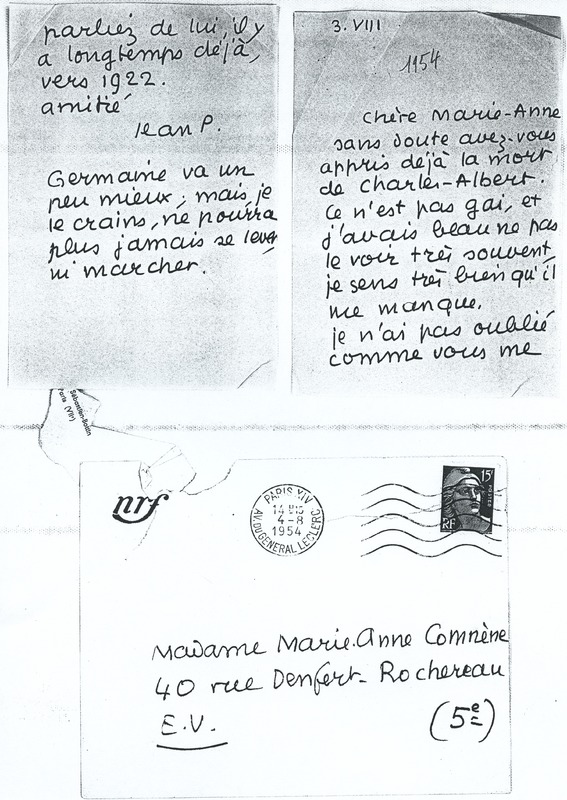 parliez de lui, il y
a longtemps déjà,
vers 1922.
amitié
Jean P.
Germaine va un
peu mieux, mais, je
le crains, ne pourra
plus jamais se lever
ni marcher.
3. VIII
1954
Chère Marie-Anne
sans doute avez-vous
appris déjà la mort
de Charles-Albert.
Ce n'est pas gai, et
j'avais beau ne pas
le voir très souvent,
je sens très bien qu'il
me manque.
je n'ai pas oublié
comme vous me
Sébastien-Bottin
Paris (VIIe)
nrf
PARIS XIV
4-8
1954
AV. DU GENERAL LECLERC
15F
RF
Madame Marie-Anne Comnène
40 rue Denfert-Rochereau
E.V.
(5e)